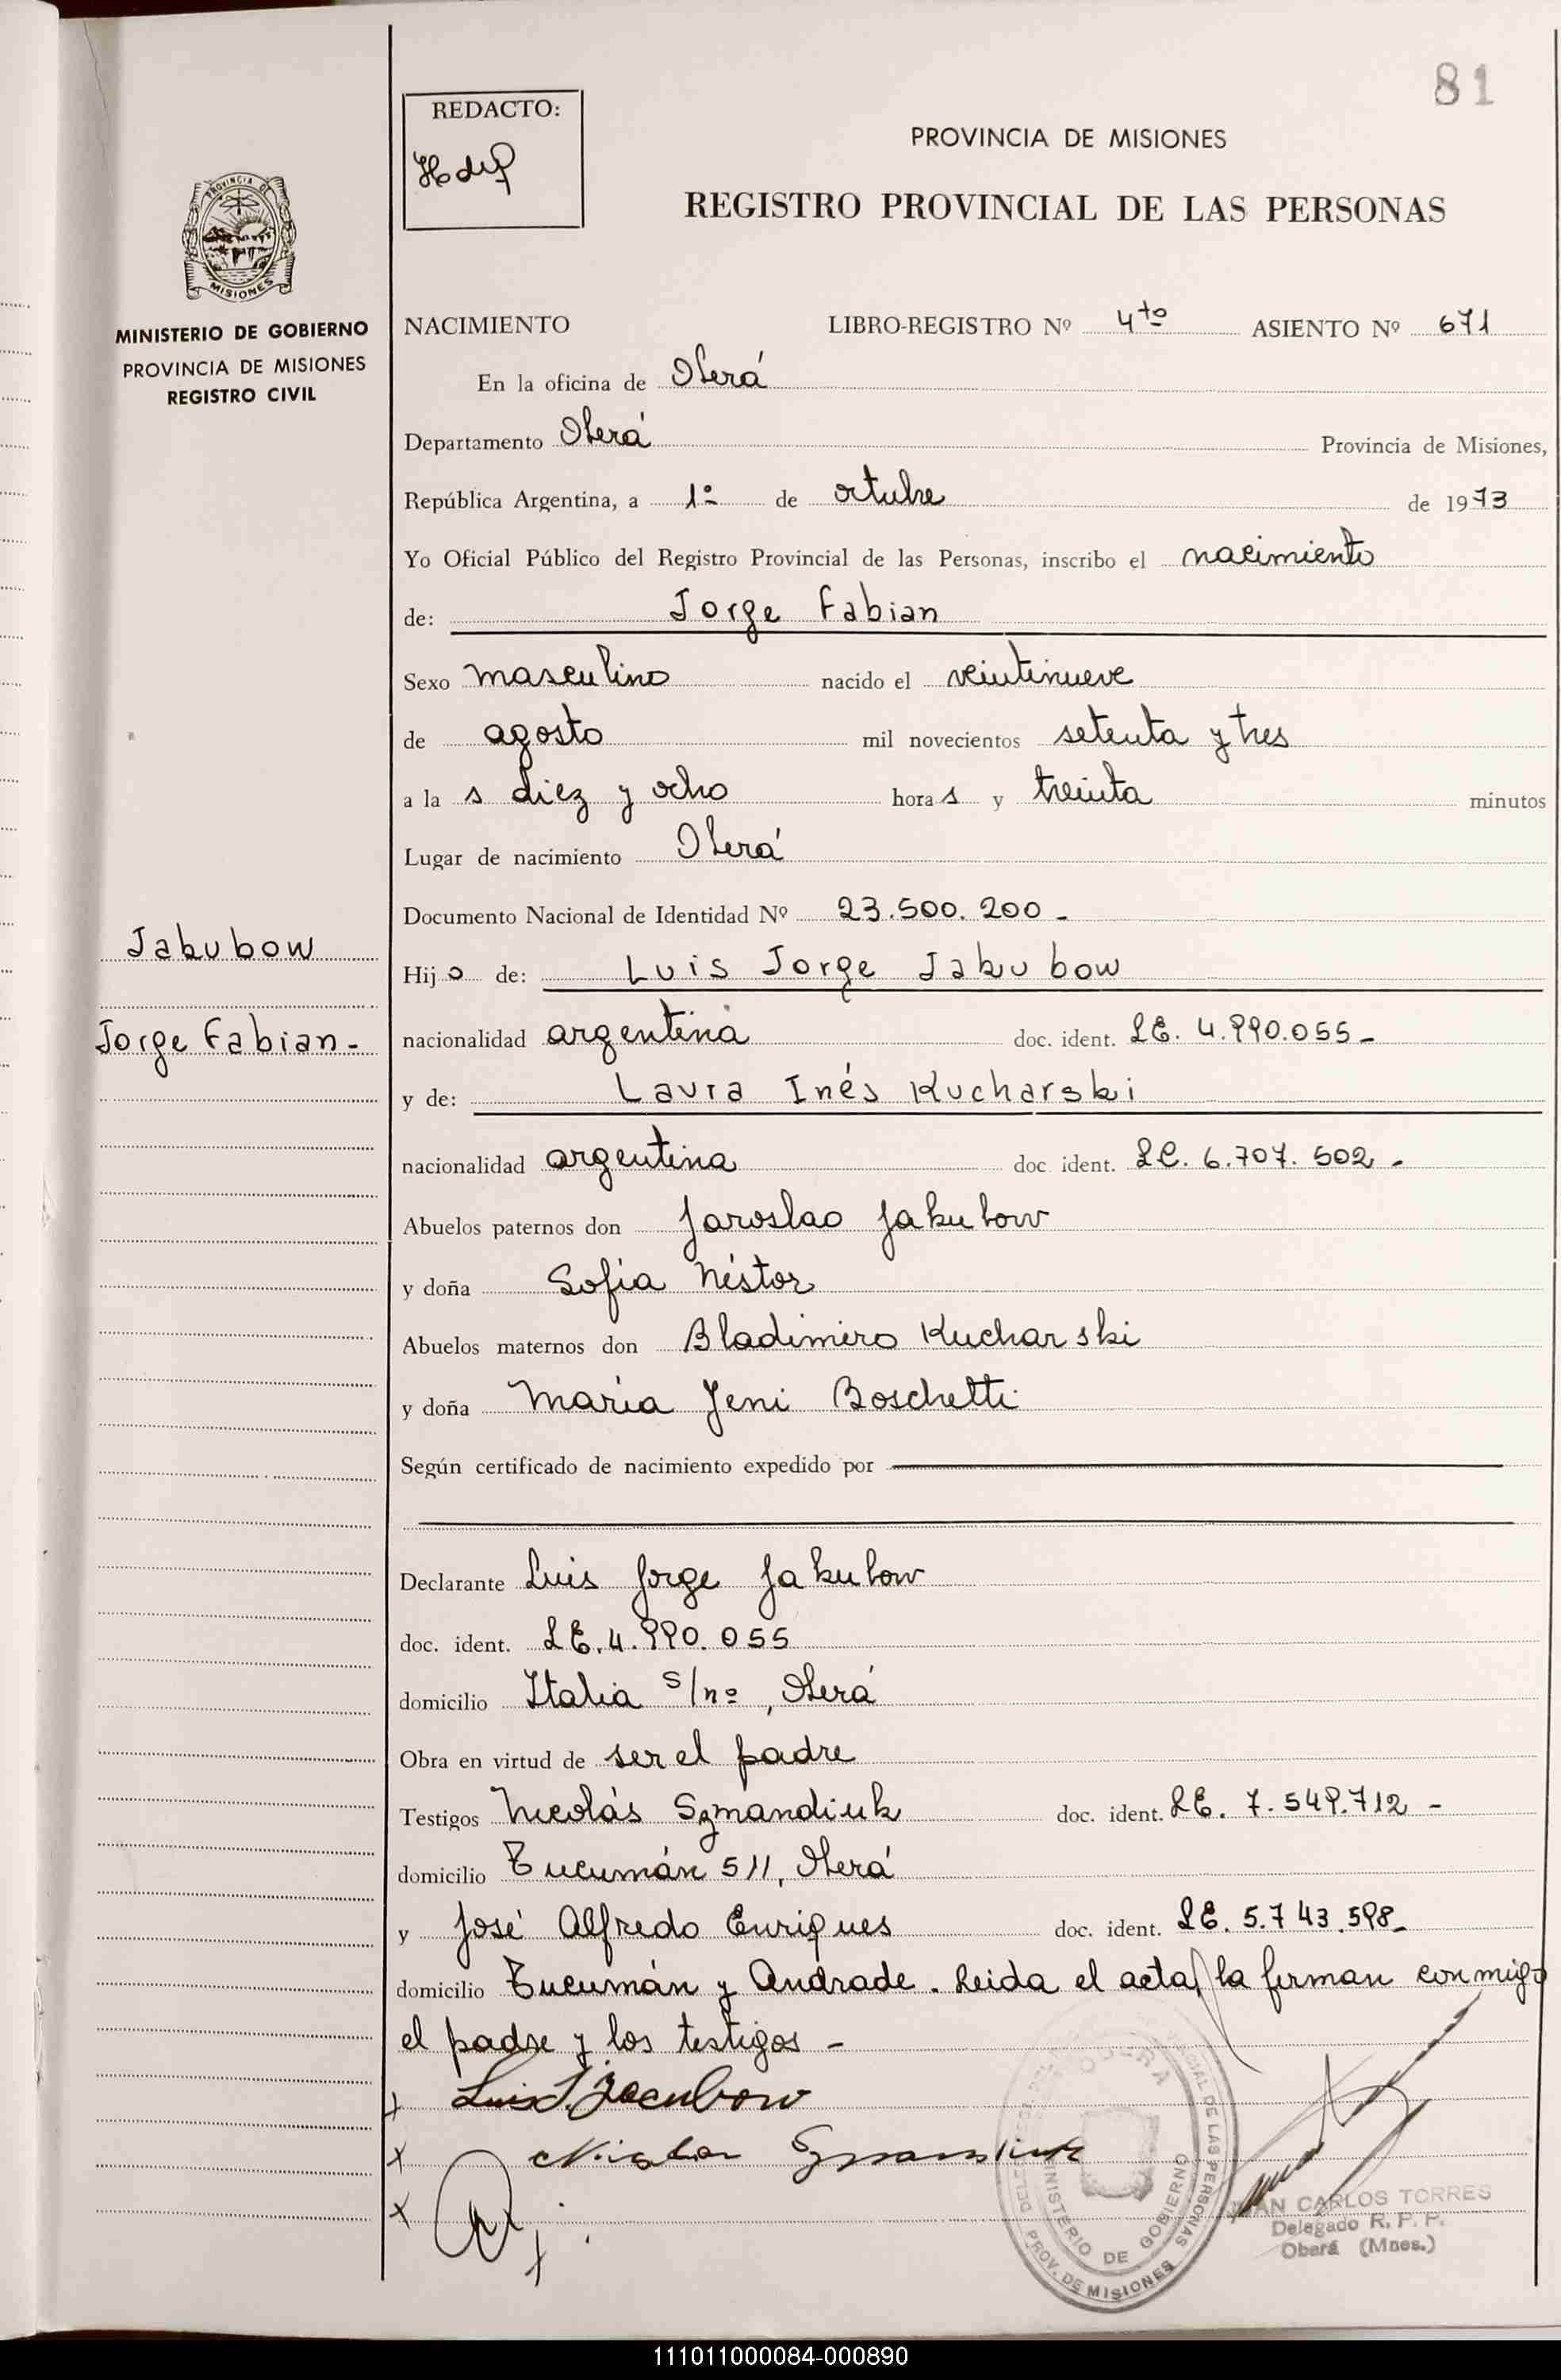 81
REDACTO:
PROVINCIA DE MISIONES
REGISTRO PROVINCIAL DE LAS PERSONAS
PROVINCIA DE
MISIONES
MINISTERIO DE GOBIERNO
PROVINCIA DE MISIONES
REGISTRO CIVIL
NACIMIENTO LIBRO-REGISTRO Nº 4to ASIENTO Nº 671
En la oficina de Oberá
Departamento Oberá Provincia de Misiones,
República Argentina, a 1º de octubre de 1973
Yo Oficial Público del Registro Provincial de las Personas, inscribo el nacimiento
de: Jorge Fabian
Sexo masculino nacido el veintinueve
de agosto mil novecientos setenta y tres
a la s diez y ocho hora s y treinta minutos
Lugar de nacimiento Oberá
Documento Nacional de Identidad Nº 23.500.200 -
Jakubow
Hijo de: Luis Jorge Jakubow
Jorge Fabian -
nacionalidad argentina doc. ident. LE. 4.990.055 -
y de: Laura Inés Kucharski
nacionalidad argentina doc ident. LC. 6.707.502 -
Abuelos paternos don Jaroslao Jakubow
y doña Sofia Néstor
Abuelos maternos don Bladimiro Kucharski
y doña María Jeni Boschetti
Según certificado de nacimiento expedido por
Declarante Luis Jorge Jakubow
doc. ident. LE. 4.990.055
domicilio Italia s/nº, Oberá
Obra en virtud de ser el padre
Testigos Nicolás Szmandiuk doc. ident. LE. 7.549.712 -
domicilio Tucumán 511, Oberá
y José Alfredo Enriques doc. ident. LE. 5.743.598 -
domicilio Tucumán y Andrade. Leida el acta, la firman conmigo
el padre y los testigos -
x Luis J. Jacubow
x Nicolas Szmandiuk
x
OBERA
MINISTERIO DE GOBIERNO
PROV. DE MISIONES
JUAN CARLOS TORRES
Delegado R. P. P.
Oberá (Mnes.)
111011000084-000890